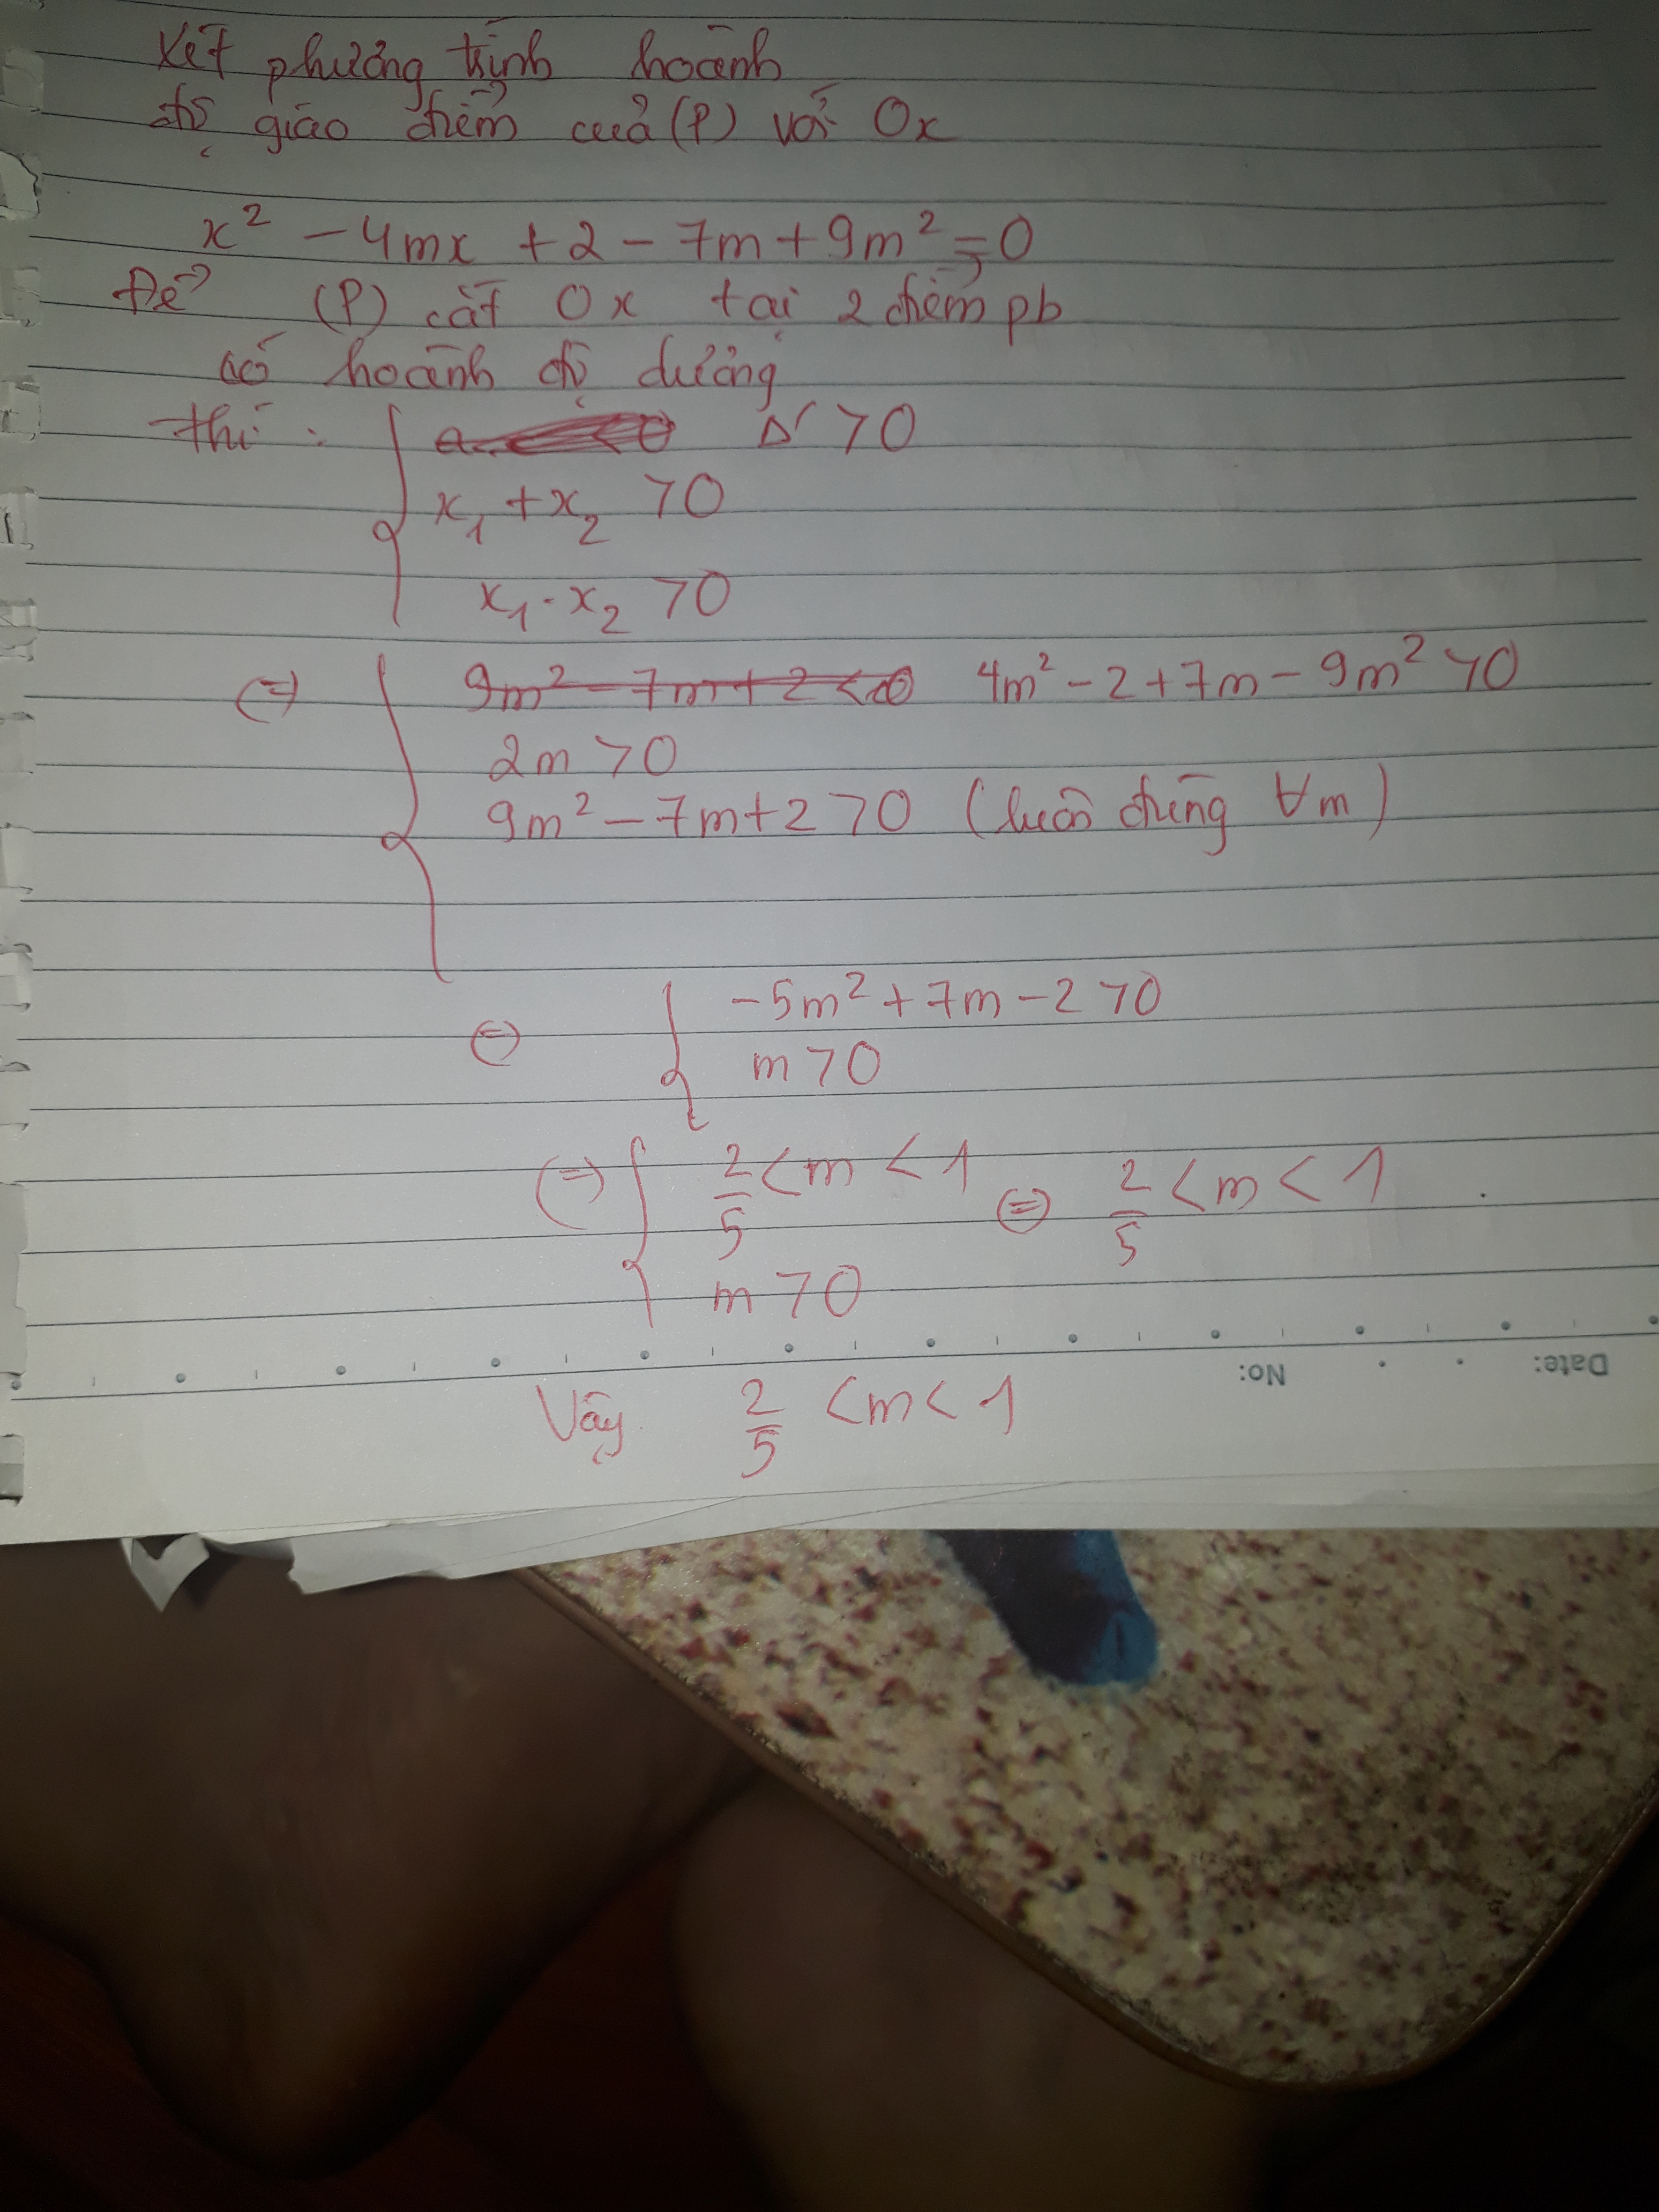 Xét phương trình hoành
độ giao điểm của (P) với Ox
x² - 4mx + 2 - 7m + 9m² = 0
Để (P) cắt Ox tại 2 điểm pb
có hoành độ dương
thì : Δ' > 0
x₁ + x₂ > 0
x₁ . x₂ > 0
(=) 9m² - 7m + 2 < 0 4m² - 2 + 7m - 9m² > 0
2m > 0
9m² - 7m + 2 > 0 (luôn đúng ∀m)
(=) -5m² + 7m - 2 > 0
m > 0
(=) 2/5 < m < 1 (=) 2/5 < m < 1
m > 0
No: Date:
Vậy 2/5 < m < 1